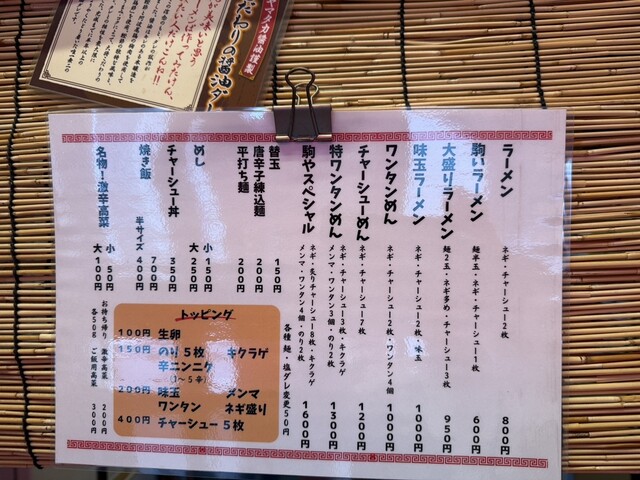 ヤマタカ醤油謹製
だわりの醤油ダ
ラーメン ネギ・チャーシュー2枚 800円
駒いラーメン 麺半玉・ネギ・チャーシュー1枚 600円
大盛りラーメン 麺2玉・ネギ多め・チャーシュー3枚 950円
味玉ラーメン ネギ・チャーシュー2枚・味玉 1000円
ワンタンめん ネギ・チャーシュー2枚・ワンタン4個 1000円
チャーシューめん ネギ・チャーシュー7枚 1200円
特ワンタンめん ネギ・チャーシュー3枚・キクラゲ
メンマ・ワンタン3個・のり2枚 1300円
駒やスペシャル ネギ・炙りチャーシュー8枚・キクラゲ
メンマ・ワンタン4個・のり2枚 1600円
各種 麺・塩ダレ変更50円
替玉 150円
唐辛子練込麺 200円
平打ち麺 200円
めし 小 150円
大 250円
チャーシュー丼 350円
焼き飯 700円
半サイズ 400円
名物！激辛高菜 小 50円
大 100円
お持ち帰り 激辛高菜 200円
各50g ご飯用高菜 300円
トッピング
100円 生卵
150円 のり5枚 キクラゲ
辛ニンニク
(1〜5辛)
200円 味玉 メンマ
ワンタン ネギ盛り
400円 チャーシュー5枚